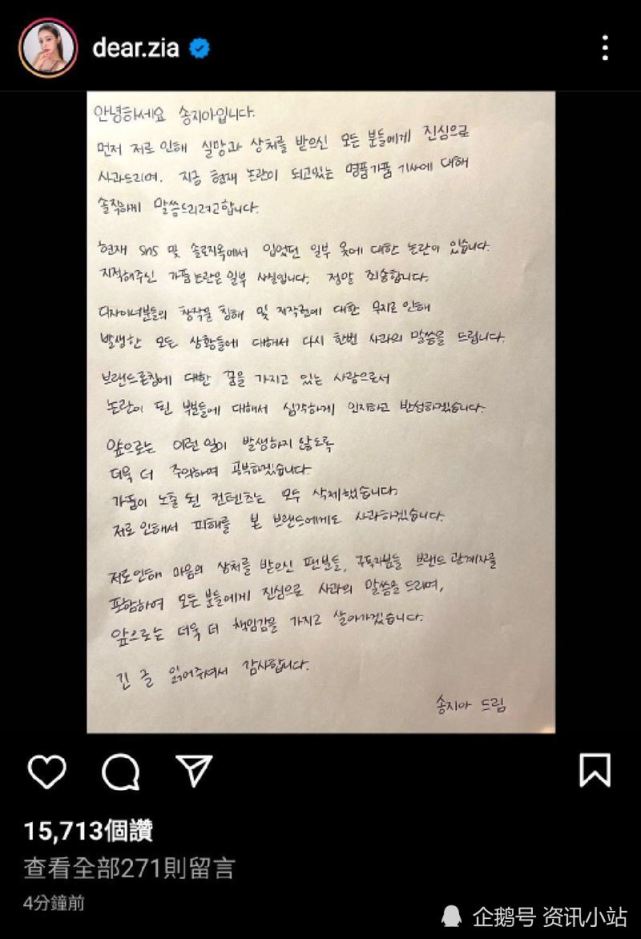 dear.zia
안녕하세요 송지아입니다.
먼저 저로 인해 실망과 상처를 받으신 모든 분들에게 진심으로
사과드리며, 지금 현재 논란이 되고있는 명품가품 기사에 대해
솔직하게 말씀드리려고합니다.
현재 sns 및 솔로지옥에서 입었던 일부 옷에 대한 논란이 있습니다.
지적해주신 가품논란은 일부 사실입니다. 정말 죄송합니다.
디자이너분들의 창작물 침해 및 저작권에 대한 무지로 인해
발생한 모든 상황들에 대해서 다시 한번 사과의 말씀을 드립니다.
브랜드론칭에 대한 꿈을 가지고 있는 사람으로서
논란이 된 부분들에 대해서 심각하게 인지하고 반성하겠습니다.
앞으로는 이런 일이 발생하지 않도록
더욱 더 주의하며 공부하겠습니다
가품이 노출 된 컨텐츠는 모두 삭제했습니다.
저로 인해서 피해를 본 브랜드에게도 사과하겠습니다.
저로인해 마음의 상처를 받으신 팬분들, 구독자분들 브랜드 관계자를
포함하여 모든 분들에게 진심으로 사과의 말씀을 드리며,
앞으로는 더욱 더 책임감을 가지고 살아가겠습니다.
긴 글 읽어주셔서 감사합니다.
송지아 드림
15,713個讚
查看全部271則留言
4分鐘前
企鹅号 资讯小站